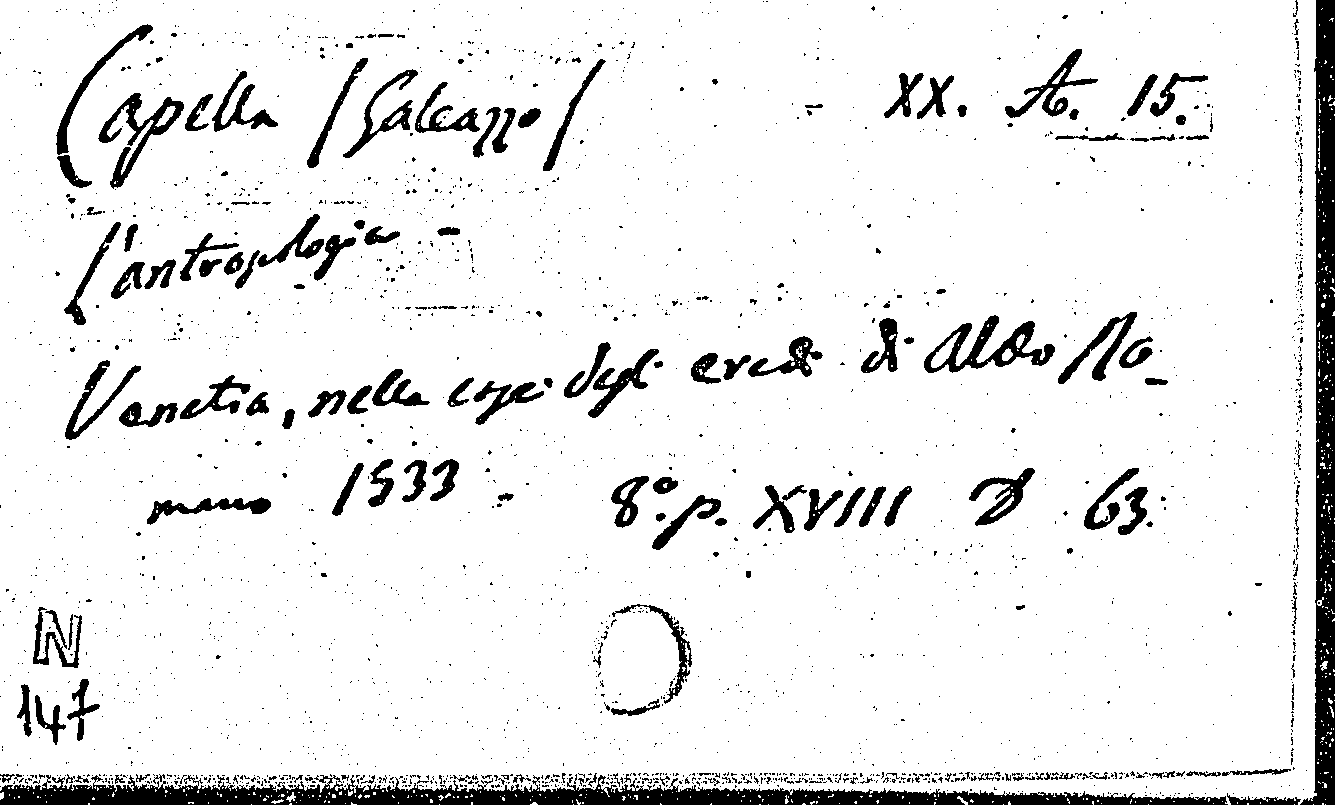 Capella /Galeazzo/ - XX. A. 15.
L'antropologia -
Venetia, nelle case degli eredi di Aldo Ro-
mano 1533 - 8º. p. XVIII D 63.
N
147